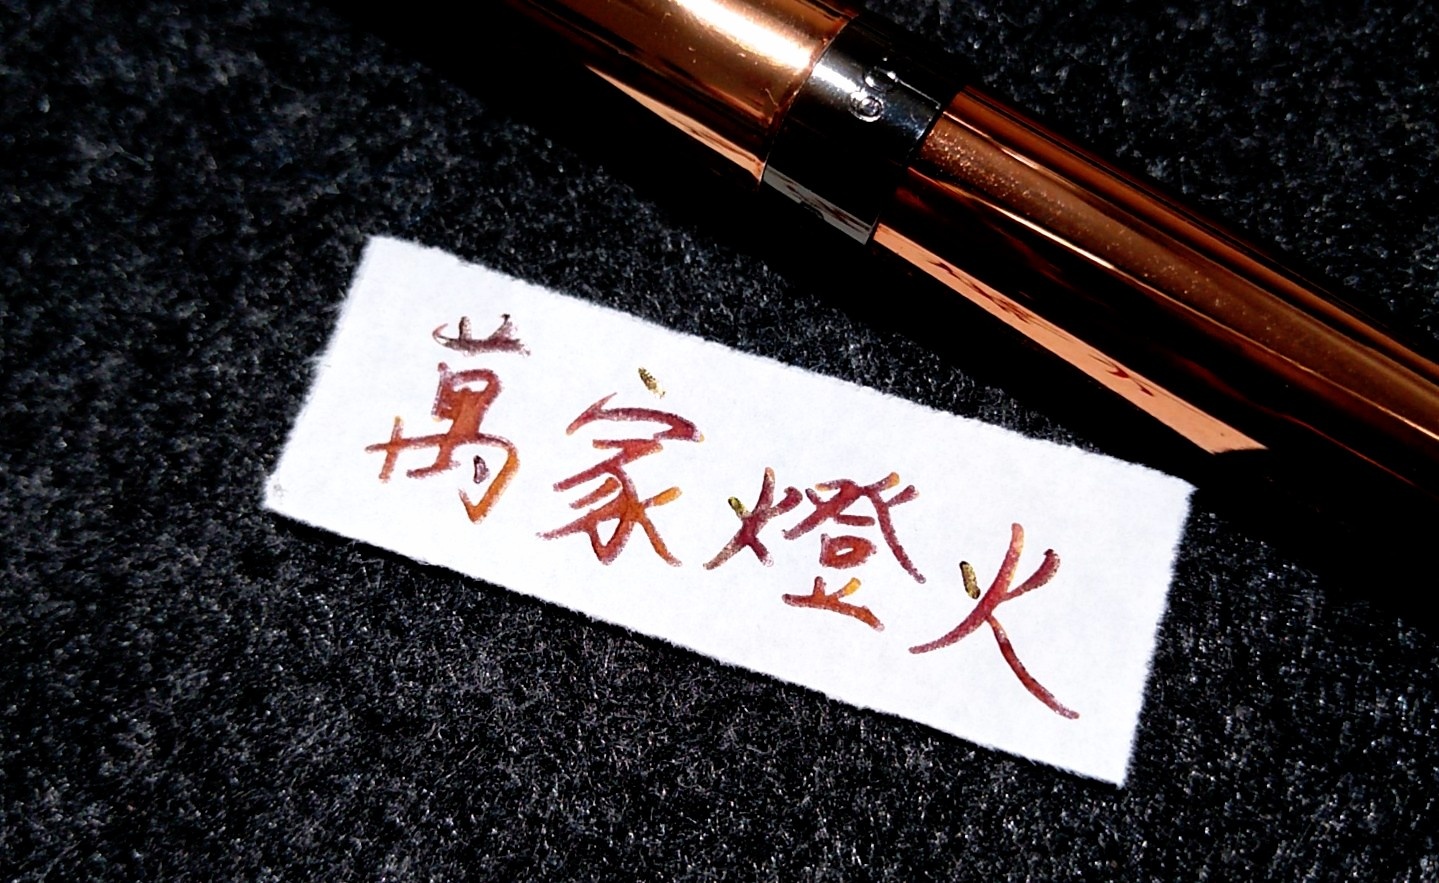 萬家燈火